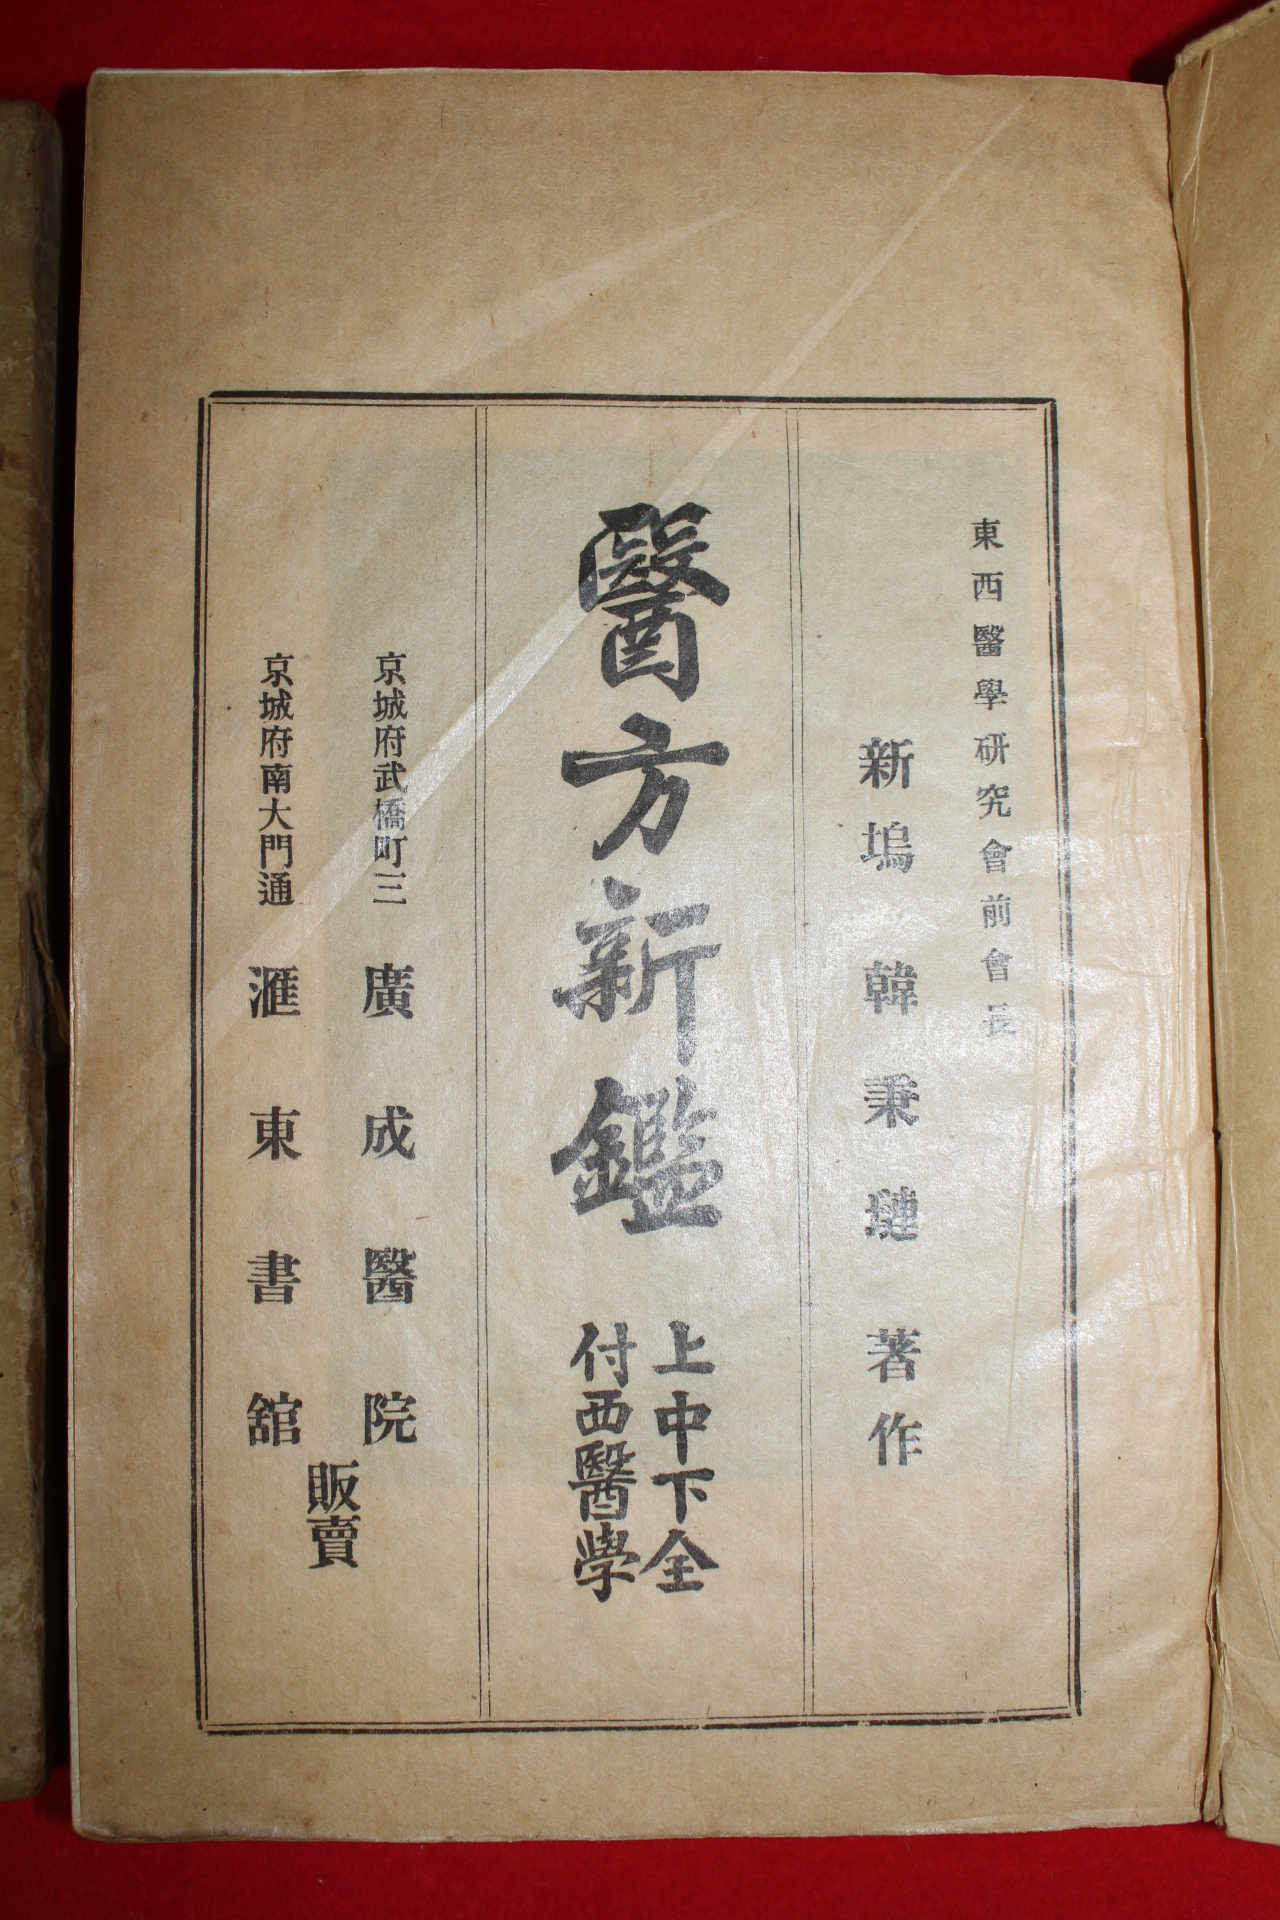 東西醫學研究會前會長
新塢 韓秉璉 著作
醫方新鑑
上中下全
付西醫學
京城府武橋町三 廣成醫院
京城府南大門通 滙東書舘
販賣